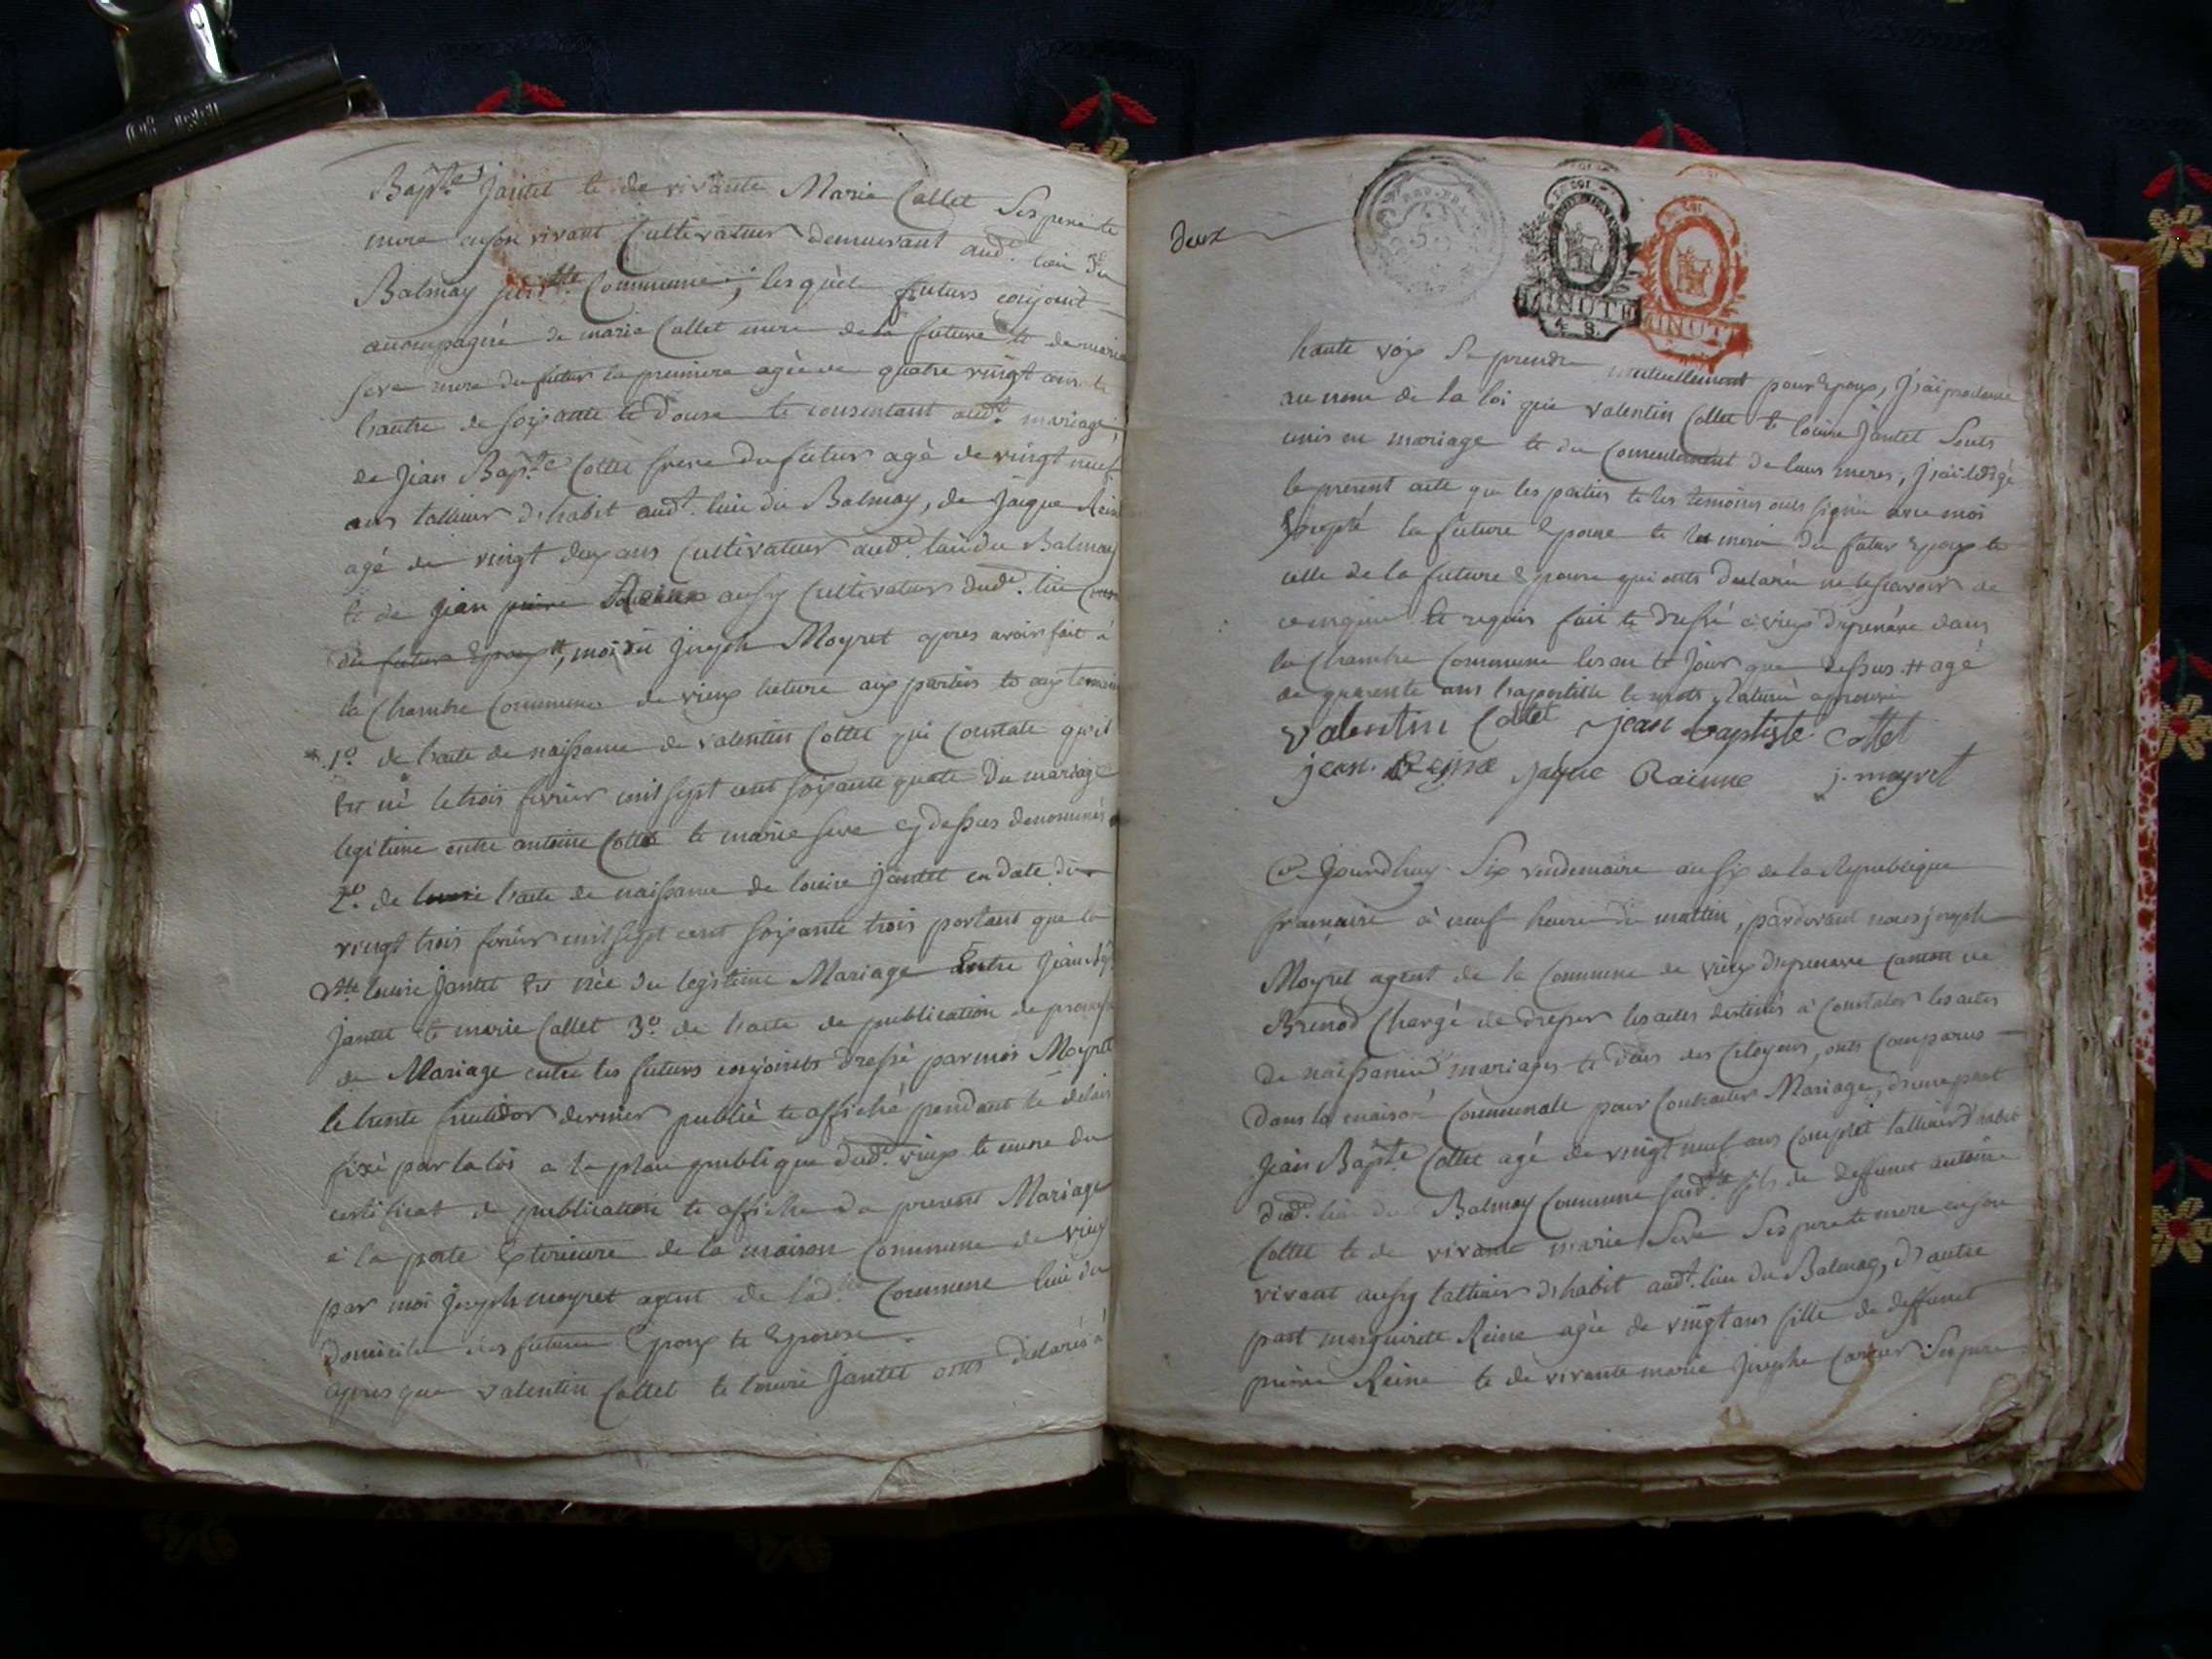 Bapte Jantet te de vivante Marie Collet Ses pere te
mere en son vivant Cultivateur demeurant aud. lieu du
Balmay susdte Commune, lesquels futurs conjoint
accompagné de marie Collet mere de la future te de marie
seve mere du futur la premiere agée de quatre vingt ans te
l'autre de soixante te douse te consentant audt mariage,
de Jean Bapte Collet frere du futur agé de vingt neuf
ans tallieur d'habit audt. lieu du Balmay, de Jaque Reine
agé de vingt deux ans Cultivateur aud. lieu du Balmay
te de Jean pierre Reine aussy Cultivateur dud. lieu
du futur Epoux #, moi dit Joseph Moyret apres avoir fait à
la Chambre Commune de vieux lecture aux parties te aux temoins
1º de l'acte de naissance de valentin Collet qui Constate qu'il
Est né le trois fevrier mil sept cent soixante quatre du mariage
legitime entre antoine Collet te marie seve cy dessus denommés
2º. de l'acte de naissance de louise Jantet en date du
vingt trois fevrier mil sept cent soixante trois portant que la
dite louise Jantet Est née du legitime Mariage Entre Jean Bpte
Jantet te marie Collet 3º. de l'acte de publication de promesse
de Mariage entre les futurs conjoints dressé par moi Moyret
le trente fructidor dernier publié te affiché pendant le delais
fixé par la loi a la place publique dud. vieux te encore du
certificat de publication te affiche du present Mariage
à la porte Exterieure de la maison Commune de vieux
par moi Joseph moyret agent de lad. Commune lieu du
domicile des futurs Epoux te Epouse.
apres que valentin Collet te louise Jantet onts declarés à
deux
MINUTE
4 S.
MINUTE
haute voix Se prendre mutuellement pour Epoux, J'ai proclamé
au nom de la loi que valentin Collet te louise Jantet Sonts
unis en mariage te du Consentement de leurs meres, J'ai redigé
le present acte que les parties te les temoins onts signés avec moi
Excepté la future Epouse te la mere du futur Epoux te
celle de la future Epouse qui onts declarée ne le scavoir de
ce enquise te requis fait te dressé à vieux d'yzenave dans
la Chambre Commune les an te Jour que dessus # agé
de quarente ans l'apostille te mots Raturé aprouvé
valentin Collet jean baptiste collet
jean. Reine jaque Raienne j. moyret
Ce Jourdhuy Six vendemiaire an six de la Republique
francaise à neuf heure du mattin, pardevant nous joseph
Moyret agent de la Commune de vieux d'yzenave canton de
Brenod Chargé de dresser les actes destinés à Constater les actes
de naissance mariages te deces des Citoyens, onts Comparus
dans la maison Communale pour Contracter Mariage, d'une part
Jean Bapte Collet agé de vingt neuf ans Complet tallieur d'habit
dud. lieu du Balmay Commune susdte fils de deffunct antoine
Collet te de vivante marie Seve Ses pere te mere en son
vivant aussy tallieur d'habit audt. lieu du Balmay, d'autre
part marguirete Reine agée de vingt ans fille de deffunct
pierre Reine te de vivante marie Josephe Carrier Ses pere